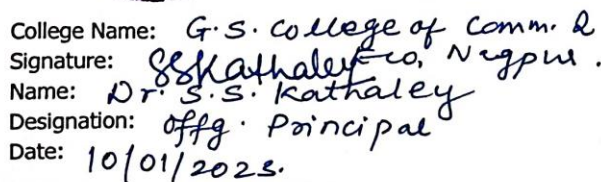 College Name: G.S. College of Comm. &
Signature: SSKathaley Eco, Nagpur.
Name: Dr. S.S. Kathaley
Designation: offg. Principal
Date: 10/01/2023.